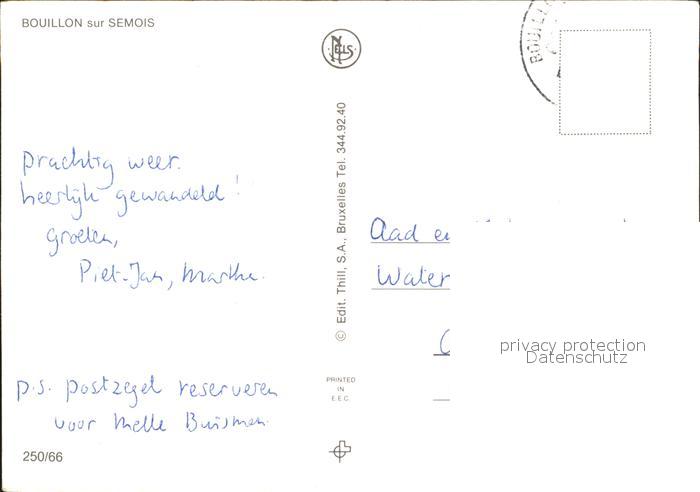 BOUILLON sur SEMOIS
NELS
BOUILLO
prachtig weer.
heerlijk gewandeld!
groeten,
Piet-Jan, Marthe.
p.s. postzegel reserveren
voor Melle Buisman.
250/66
© Edit. Thill, S.A., Bruxelles Tel. 344.92.40
PRINTED
IN
E.E.C.
Aad en
Water
privacy protection
Datenschutz